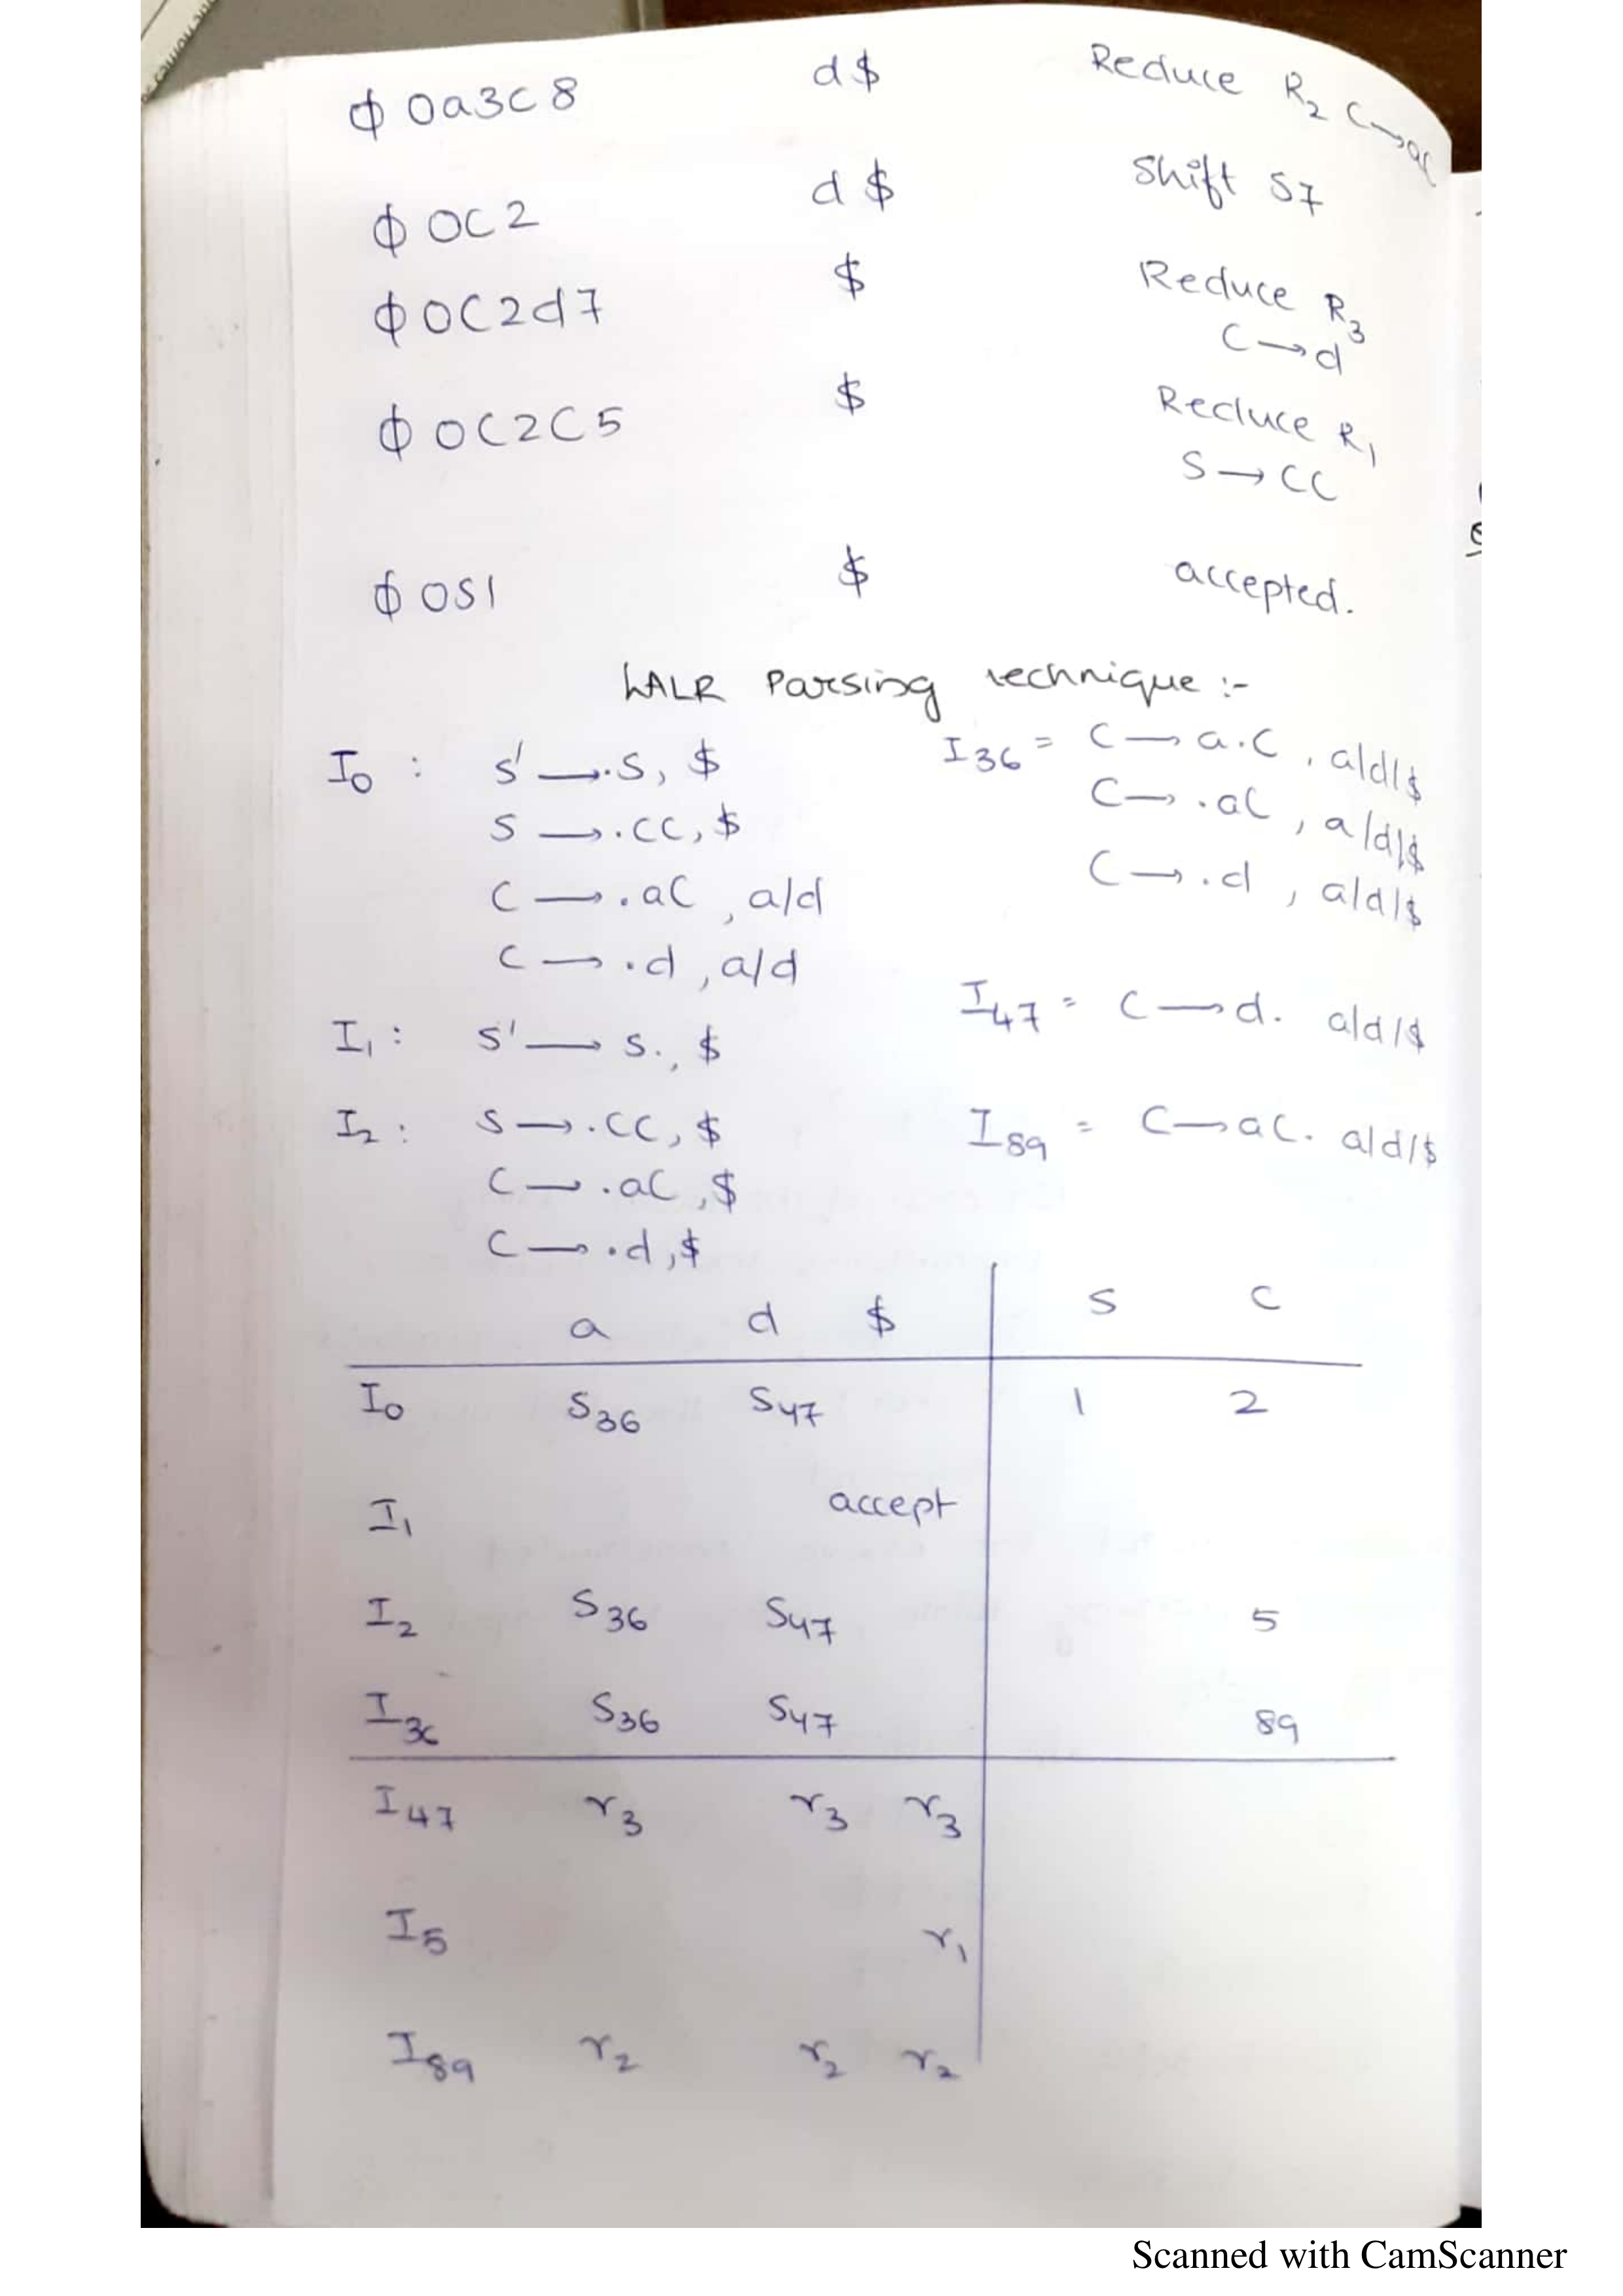 $ 0a3C8 d$ Reduce R2 C→aC
$ 0C2 d$ Shift S7
$ 0C2d7 $ Reduce R3
C→d
$ 0C2C5 $ Reduce R1
S→CC
$ 0S1 $ accepted.
LALR Parsing technique :-
I0 : S'→.S, $
S→.CC, $
C→.aC, a/d
C→.d, a/d
I1 : S'→S., $
I2 : S→.CC, $
C→.aC, $
C→.d, $
I36 = C→a.C, a/d/$
C→.aC, a/d/$
C→.d, a/d/$
I47 = C→d. a/d/$
I89 = C→aC. a/d/$
a d $ S C
I0 S36 S47 1 2
I1 accept
I2 S36 S47 5
I36 S36 S47 89
I47 r3 r3 r3
I5 r1
I89 r2 r2 r2
Scanned with CamScanner